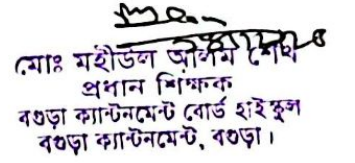 মোঃ মহীউল আলম
প্রধান শিক্ষক
বগুড়া ক্যান্টনমেন্ট বোর্ড হাই স্কুল
বগুড়া ক্যান্টনমেন্ট, বগুড়া।